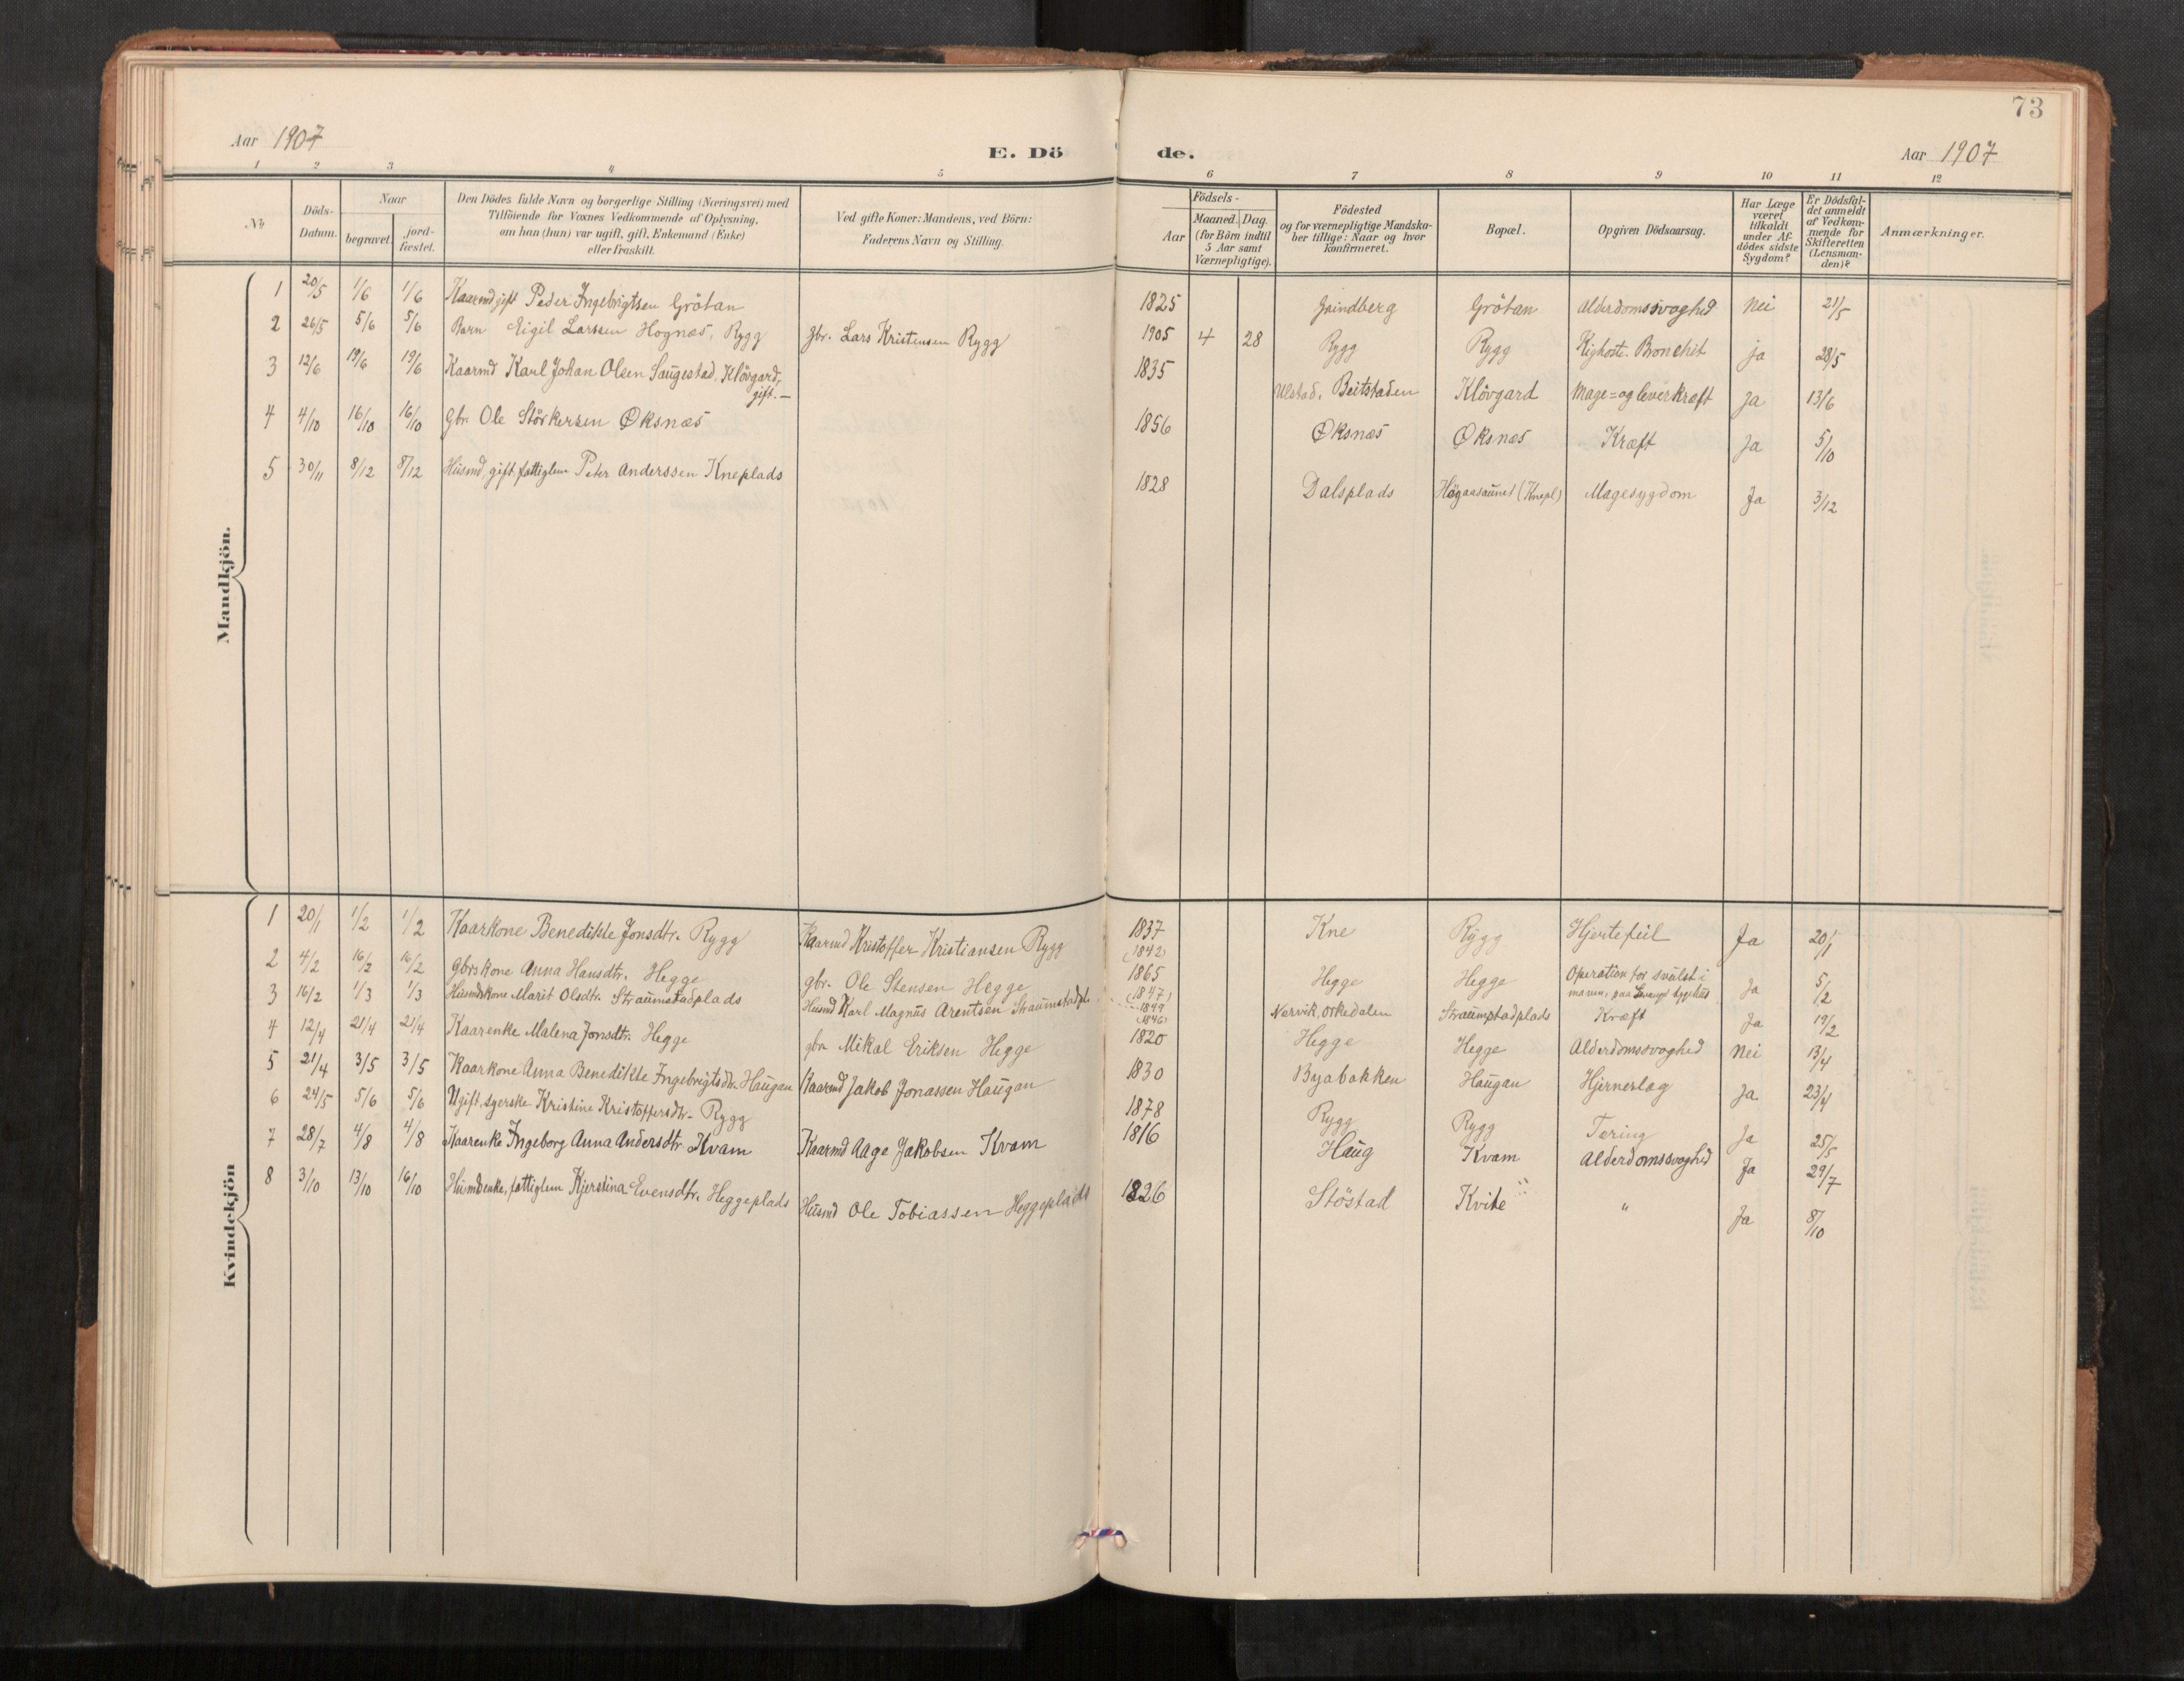 73
Aar 1907
E. Dö de.
Aar 1907
1 2 3 4 5 6 7 8 9 10 11 12
No
Döds-Datum.
Naar
begravet.
jord-fæstet.
Den Dödes fulde Navn og borgerlige Stilling (Næringsvei) med
Tilföiende for Voxnes Vedkommende af Oplysning,
om han (hun) var ugift, gift, Enkemand (Enke)
eller fraskilt.
Ved gifte Koner: Mandens, ved Börn:
Faderens Navn og Stilling.
Födsels-
Aar
Maaned. Dag.
(for Börn indtil
5 Aar samt
Værnepligtige).
Födested
og for værnepligtige Mandska-
ber tillige: Naar og hvor
konfirmeret.
Bopæl.
Opgiven Dödsaarsag.
Har Læge
været
tilkaldt
under Af-
dödes sidste
Sygdom?
Er Dödsfal-
det anmeldt
af Vedkom-
mende for
Skifteretten
(Lensman-
den)?
Anmærkninger.
Mandkjön.
1 20/5 1/6 1/6 Kaarmd gift Peder Ingebrigtsen Grötan 1825 Grötan Alderdomssvaghed Nei 21/5
2 26/5 5/6 5/6 Barn Eigil Larssen Hognæs, Rygg gbr. Lars Kristensen Rygg 1905 4 28 Rygg Rygg Kighoste. Bronchit ja 28/5
3 12/6 19/6 19/6 Kaarmd Karl Johan Olsen Saugestad, Klövgard, gift.— 1835 Ulstad, Beitstaden Klövgard Mage= og leverkræft Ja 13/6
4 4/10 16/10 16/10 Gbr. Ole Störkersen Øksnæs 1856 Øksnæs Øksnæs Kræft Ja 5/10
5 30/11 8/12 8/12 Husmd gift, fattiglem Peter Anderssen Kneplads 1828 Dalsplads (Knepl) Magesygdom Ja 3/12
Kvindekjön
1 20/1 1/2 1/2 Kaarkone Benedikte Jonsdtr. Rygg Kaarmd Kristoffer Kristiansen Rygg 1837 (1842) Kne Rygg Hjertefeil Ja 20/1
2 4/2 16/2 16/2 Gbrs kone Anna Hansdtr. Hegge gbr. Ole Stensen Hegge 1865 (1847) Hegge Hegge Operation for svulst i maven, paa sygehus Ja 5/2
3 16/2 1/3 1/3 Husmdskone Marit Olsdtr. Straumstadplads Husmd Karl Magnus Arentsen Straumstadpl. 1849 (1846) Nervik, Orkedalen Straumstadplads Kræft Ja 19/2
4 12/4 21/4 21/4 Kaarenke Malena Jonsdtr. Hegge gbr. Mikal Eriksen Hegge 1820 Hegge Hegge Alderdomssvaghed Nei 13/4
5 21/4 3/5 3/5 Kaarkone Anna Benedikte Ingebrigtsdtr. Haugan Kaarmd Jakob Jonassen Haugan 1830 Byabakken Haugan Hjerneslag Ja 23/4
6 24/5 5/6 5/6 Ugift, syerske Kristine Kristoffersdtr. Rygg 1878 Rygg Rygg Tæring Ja 25/5
7 28/7 4/8 4/8 Kaarenke Ingeborg Anna Andersdtr. Kvam Kaarmd Aage Jakobsen Kvam 1816 Haug Kvam Alderdomssvaghed Ja 29/7
8 3/10 13/10 16/10 Husmdenke, fattiglem Kjerstina Evensdtr. Heggeplads Husmd Ole Tobiassen Heggeplads 1826 Stöstad Kvite " Ja 8/10